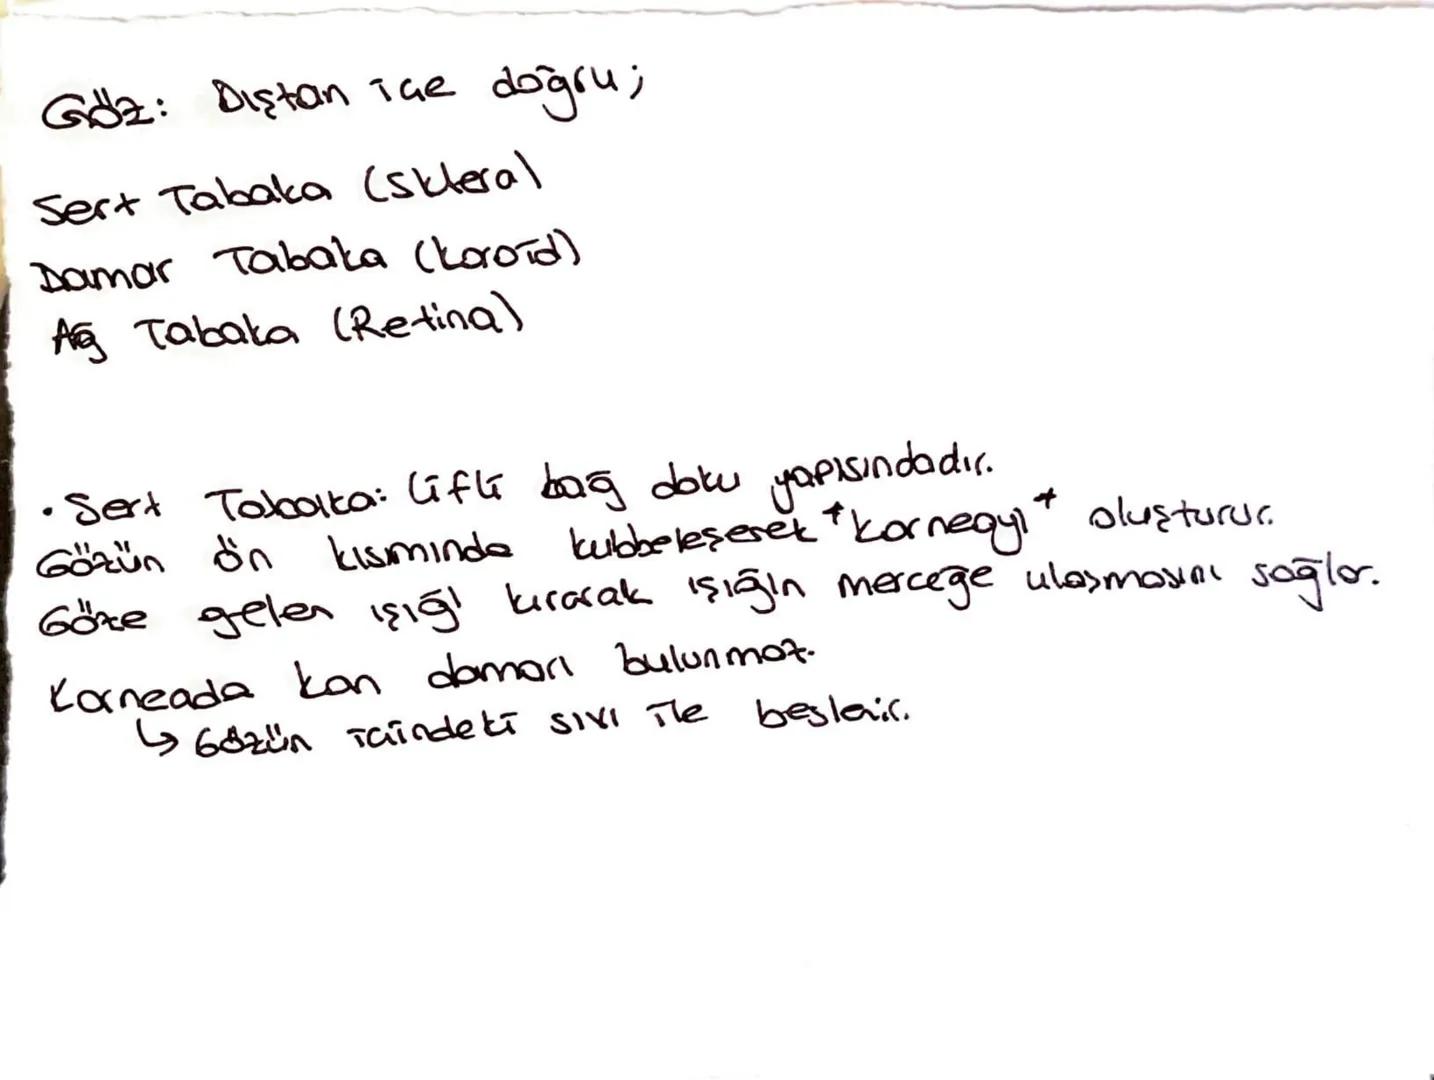 Göz: Dıştan içe doğru;
Sert Tabaka (Sklera)
Damar Tabaka (koroid)
Ağ Tabaka (Retina)
• Sert Tabaka: Lifli bağ doku yapısındadır.
Gözün ön kısmında kubbeleşerek *korneayı* oluşturur.
Göze gelen ışığı kırarak ışığın merceğe ulaşmasını sağlar.
Korneada kan damarı bulunmaz.
↳ Gözün içindeki sıvı ile beslenir.